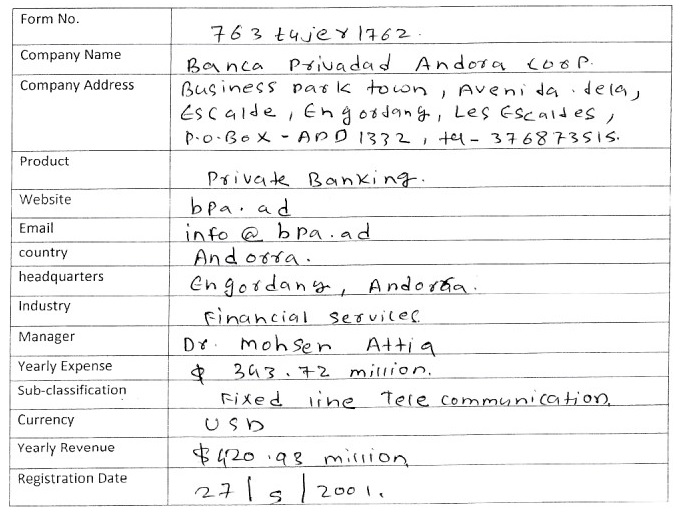 Form No. 763 tujer1762.
Company Name Banca Privadad Andora CorP.
Company Address Business park town, Avenida dela,
Escalde, Engordany, Les Escaldes,
P.O.Box - ADD 1332, tel - 376873515.
Product Private Banking.
Website bpa.ad
Email info@bpa.ad
country Andorra.
headquarters Engordany, Andorra.
Industry Financial services
Manager Dr. Mohsen Attia
Yearly Expense $ 343.72 million.
Sub-classification Fixed line Tele communication.
Currency USD
Yearly Revenue $420.93 million
Registration Date 27/5/2001.